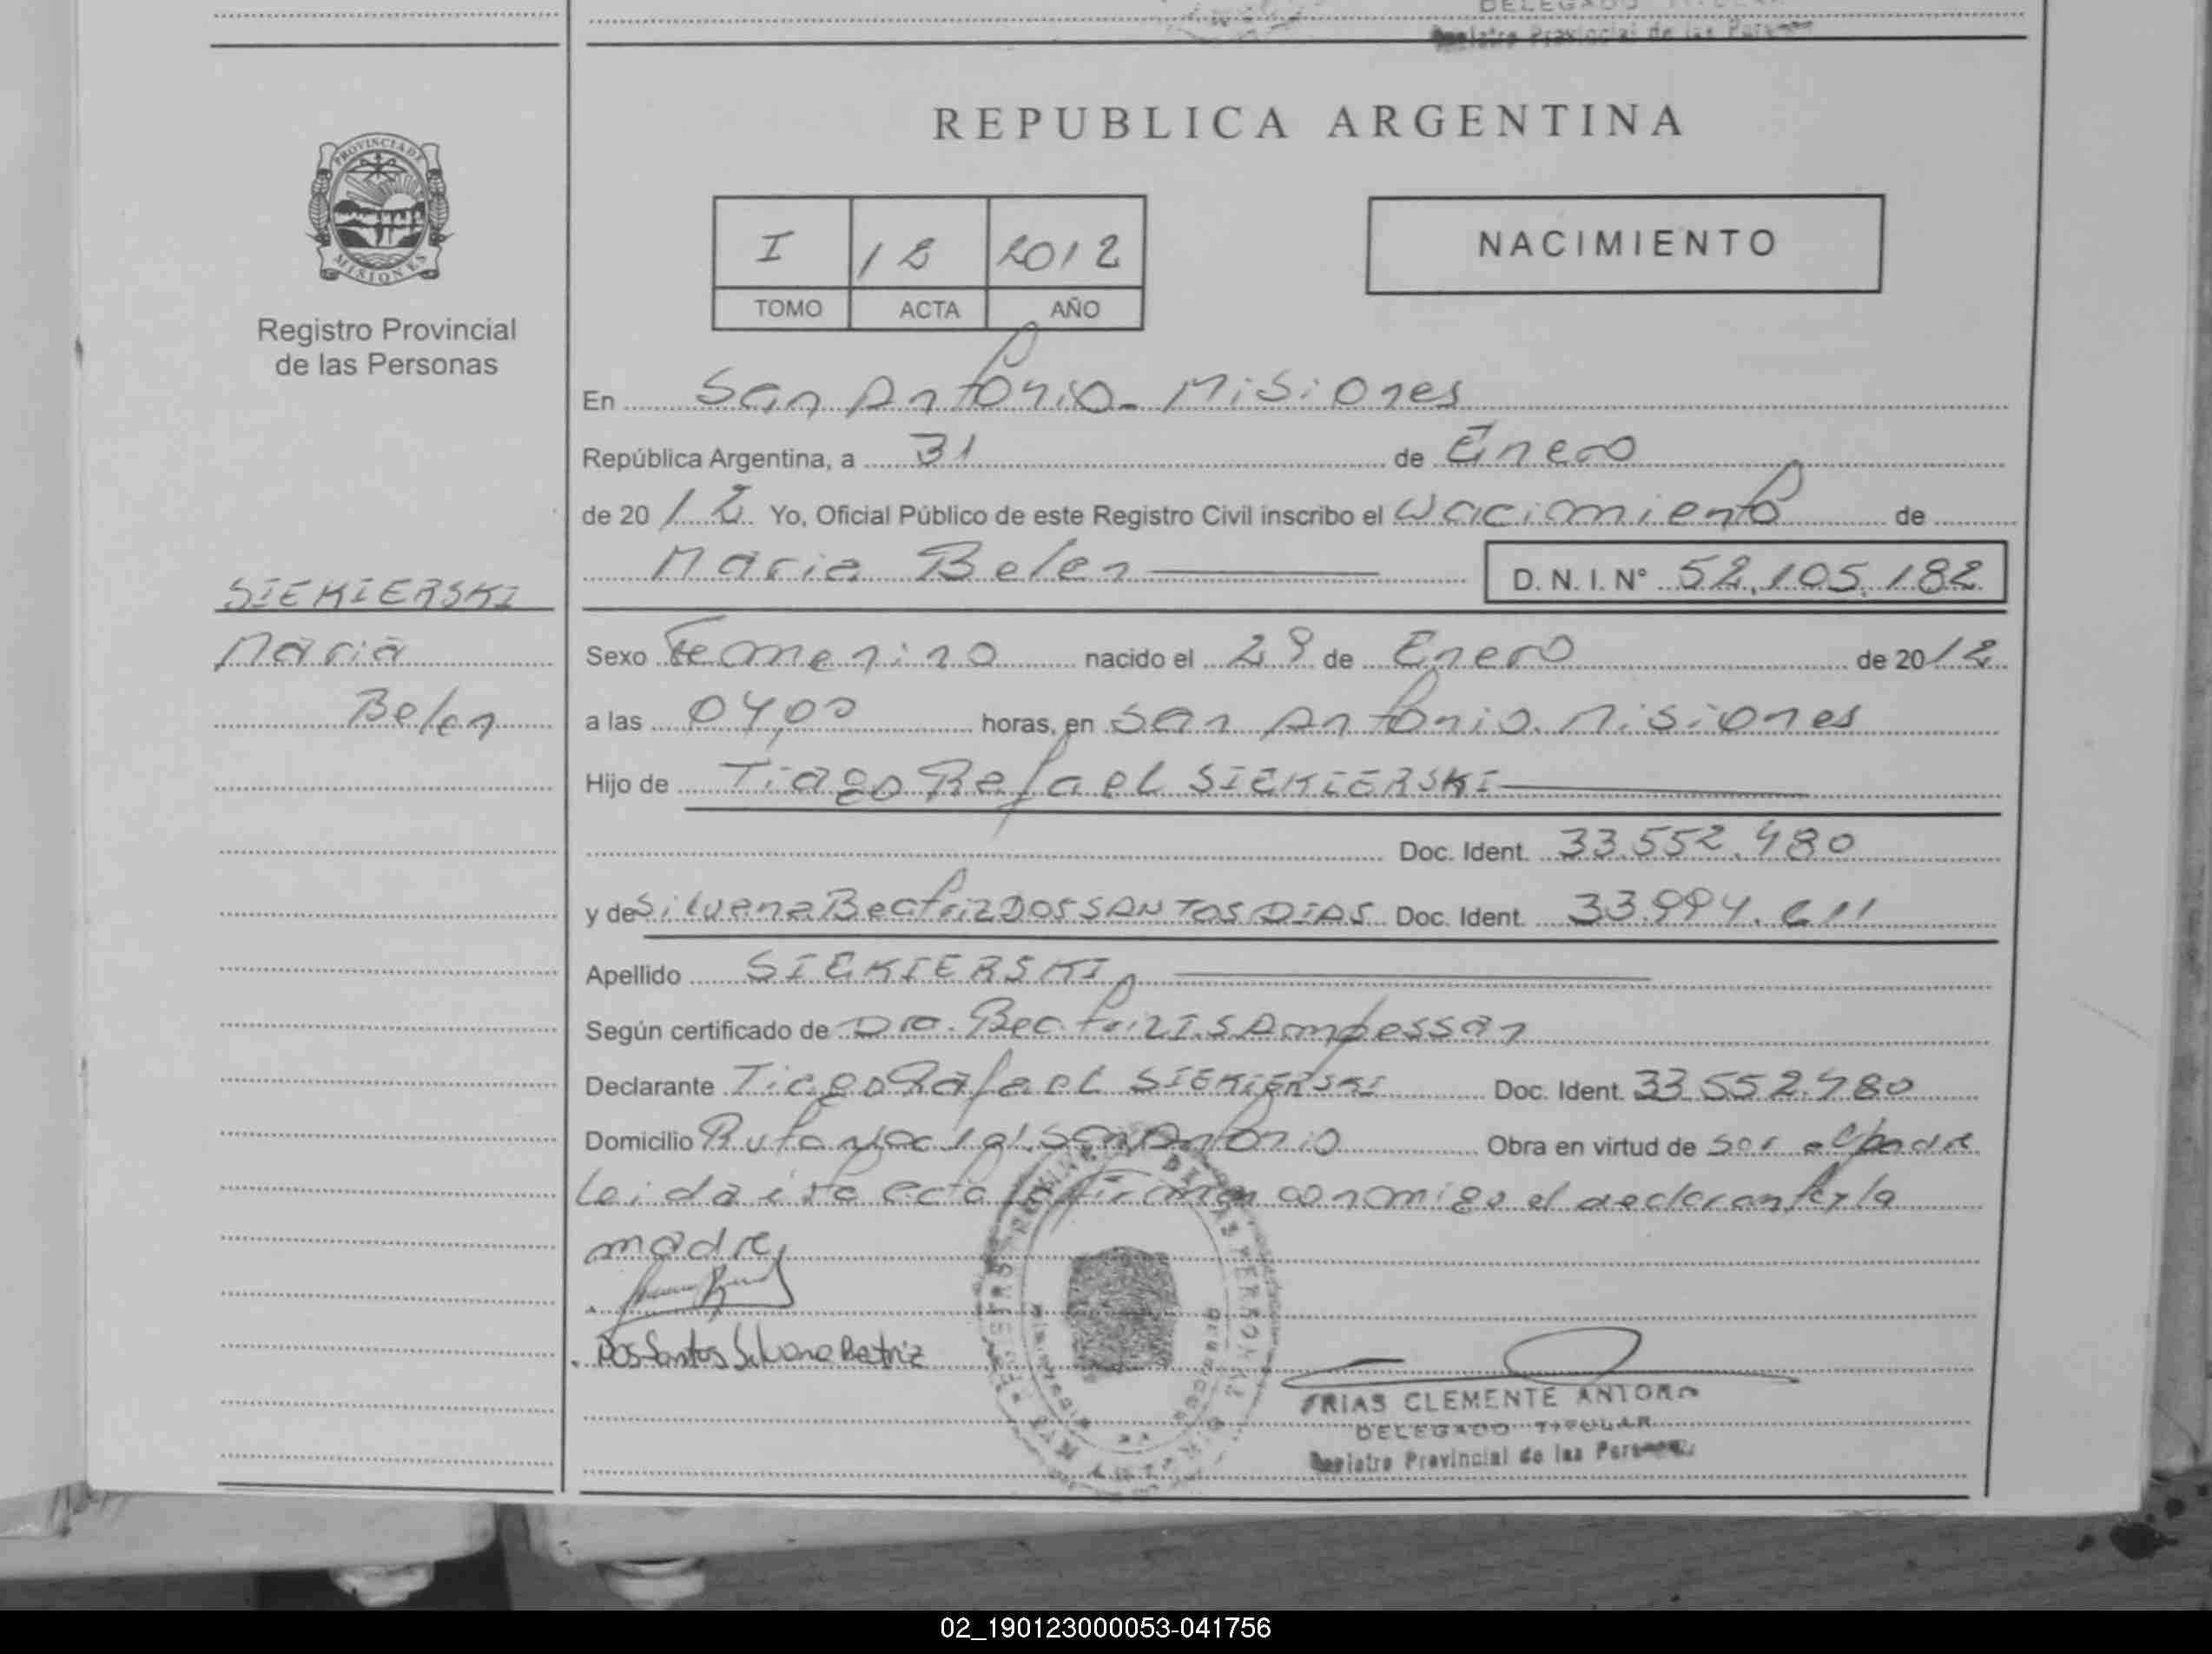 DELEGADO TITULAR
Registro Provincial de las Personas
PROVINCIA DE
MISIONES
Registro Provincial
de las Personas
REPUBLICA ARGENTINA
I 18 2012
TOMO ACTA AÑO
NACIMIENTO
En San Antonio - Misiones
República Argentina, a 31 de Enero
de 20 12 Yo, Oficial Público de este Registro Civil inscribo el Nacimiento de
Maria Belen D. N. I. N° 52.105.182
SIEKIERSKI
Maria
Belen
Sexo Femenino nacido el 29 de Enero de 20 12
a las 04,00 horas, en San Antonio. Misiones
Hijo de Tiago Rafael SIEKIERSKI
Doc. Ident. 33.552.480
y de Silvana Beatriz DOS SANTOS DIAS Doc. Ident. 33.994.611
Apellido SIEKIERSKI
Según certificado de Dra. Beatriz I. Sampessan
Declarante Tiago Rafael SIEKIERSKI Doc. Ident. 33.552.480
Domicilio Ruta Nac 101. San Antonio Obra en virtud de ser el padre
Leida esta acta la firman conmigo el declarante y la
madre,
Dos Santos Silvana Beatriz
FRIAS CLEMENTE ANTONIO
DELEGADO TITULAR
Registro Provincial de las Personas
02_190123000053-041756